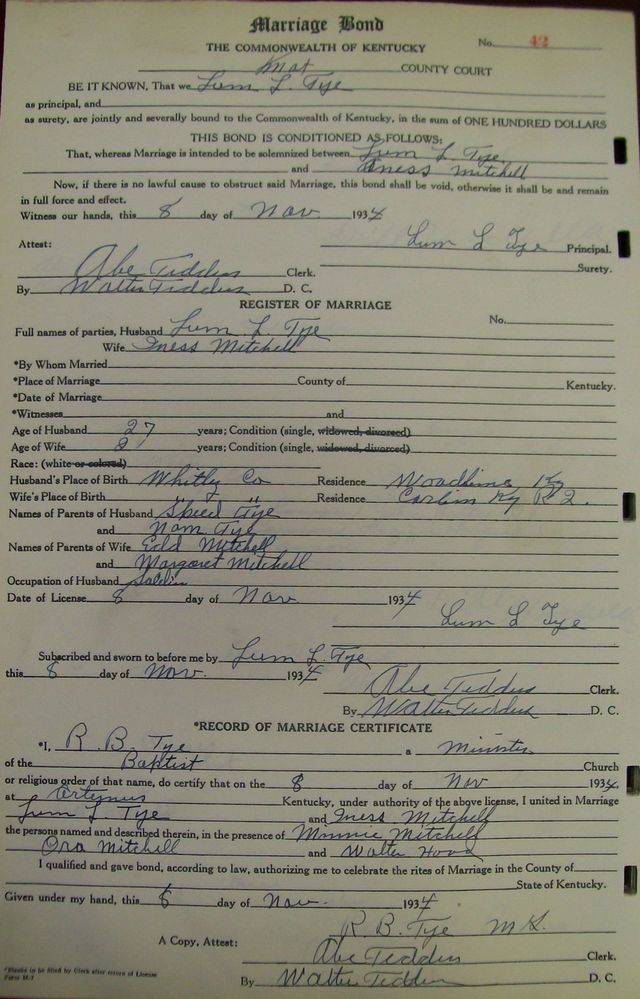 Marriage Bond
THE COMMONWEALTH OF KENTUCKY
No. 42
Knox COUNTY COURT
BE IT KNOWN, That we Lum L. Tye
as principal, and
as surety, are jointly and severally bound to the Commonwealth of Kentucky, in the sum of ONE HUNDRED DOLLARS
THIS BOND IS CONDITIONED AS FOLLOWS:
That, whereas Marriage is intended to be solemnized between Lum L. Tye
and Iness Mitchell
Now, if there is no lawful cause to obstruct said Marriage, this bond shall be void, otherwise it shall be and remain
in full force and effect.
Witness our hands, this 8 day of Nov. 1934
Lum L Tye Principal.
Attest:
Surety.
Abe Teddus Clerk.
By Walter Teddus D. C.
REGISTER OF MARRIAGE
No.
Full names of parties, Husband Lum L. Tye
Wife Iness Mitchell
*By Whom Married
*Place of Marriage County of Kentucky.
*Date of Marriage
*Witnesses and
Age of Husband 27 years; Condition (single, widowed, divorced)
Age of Wife 21 years; Condition (single, widowed, divorced)
Race: (white or colored)
Husband's Place of Birth Whitly Co Residence Woodbine, Ky
Wife's Place of Birth " " Residence Corbin Ky R 2.
Names of Parents of Husband Speed Tye
and Nom Tye
Names of Parents of Wife Edd Mitchell
and Margaret Mitchell
Occupation of Husband
Date of License 8 day of Nov. 1934
Lum L Tye
Subscribed and sworn to before me by Lum L. Tye
this 8 day of Nov. 1934
Abe Teddus Clerk.
By Walter Teddus D. C.
*RECORD OF MARRIAGE CERTIFICATE
*I, R. B. Tye a Minister
of the Baptist Church
or religious order of that name, do certify that on the 8 day of Nov 1934
at Artemus Kentucky, under authority of the above license, I united in Marriage
Lum L. Tye and Iness Mitchell
the persons named and described therein, in the presence of Minnie Mitchell
Ora Mitchell and Walter Hood
I qualified and gave bond, according to law, authorizing me to celebrate the rites of Marriage in the County of
State of Kentucky.
Given under my hand, this 8 day of Nov. 1934
R. B. Tye M.G.
A Copy, Attest: Abe Teddus Clerk.
*Blanks to be filled by Clerk after return of License
By Walter Teddus D. C.